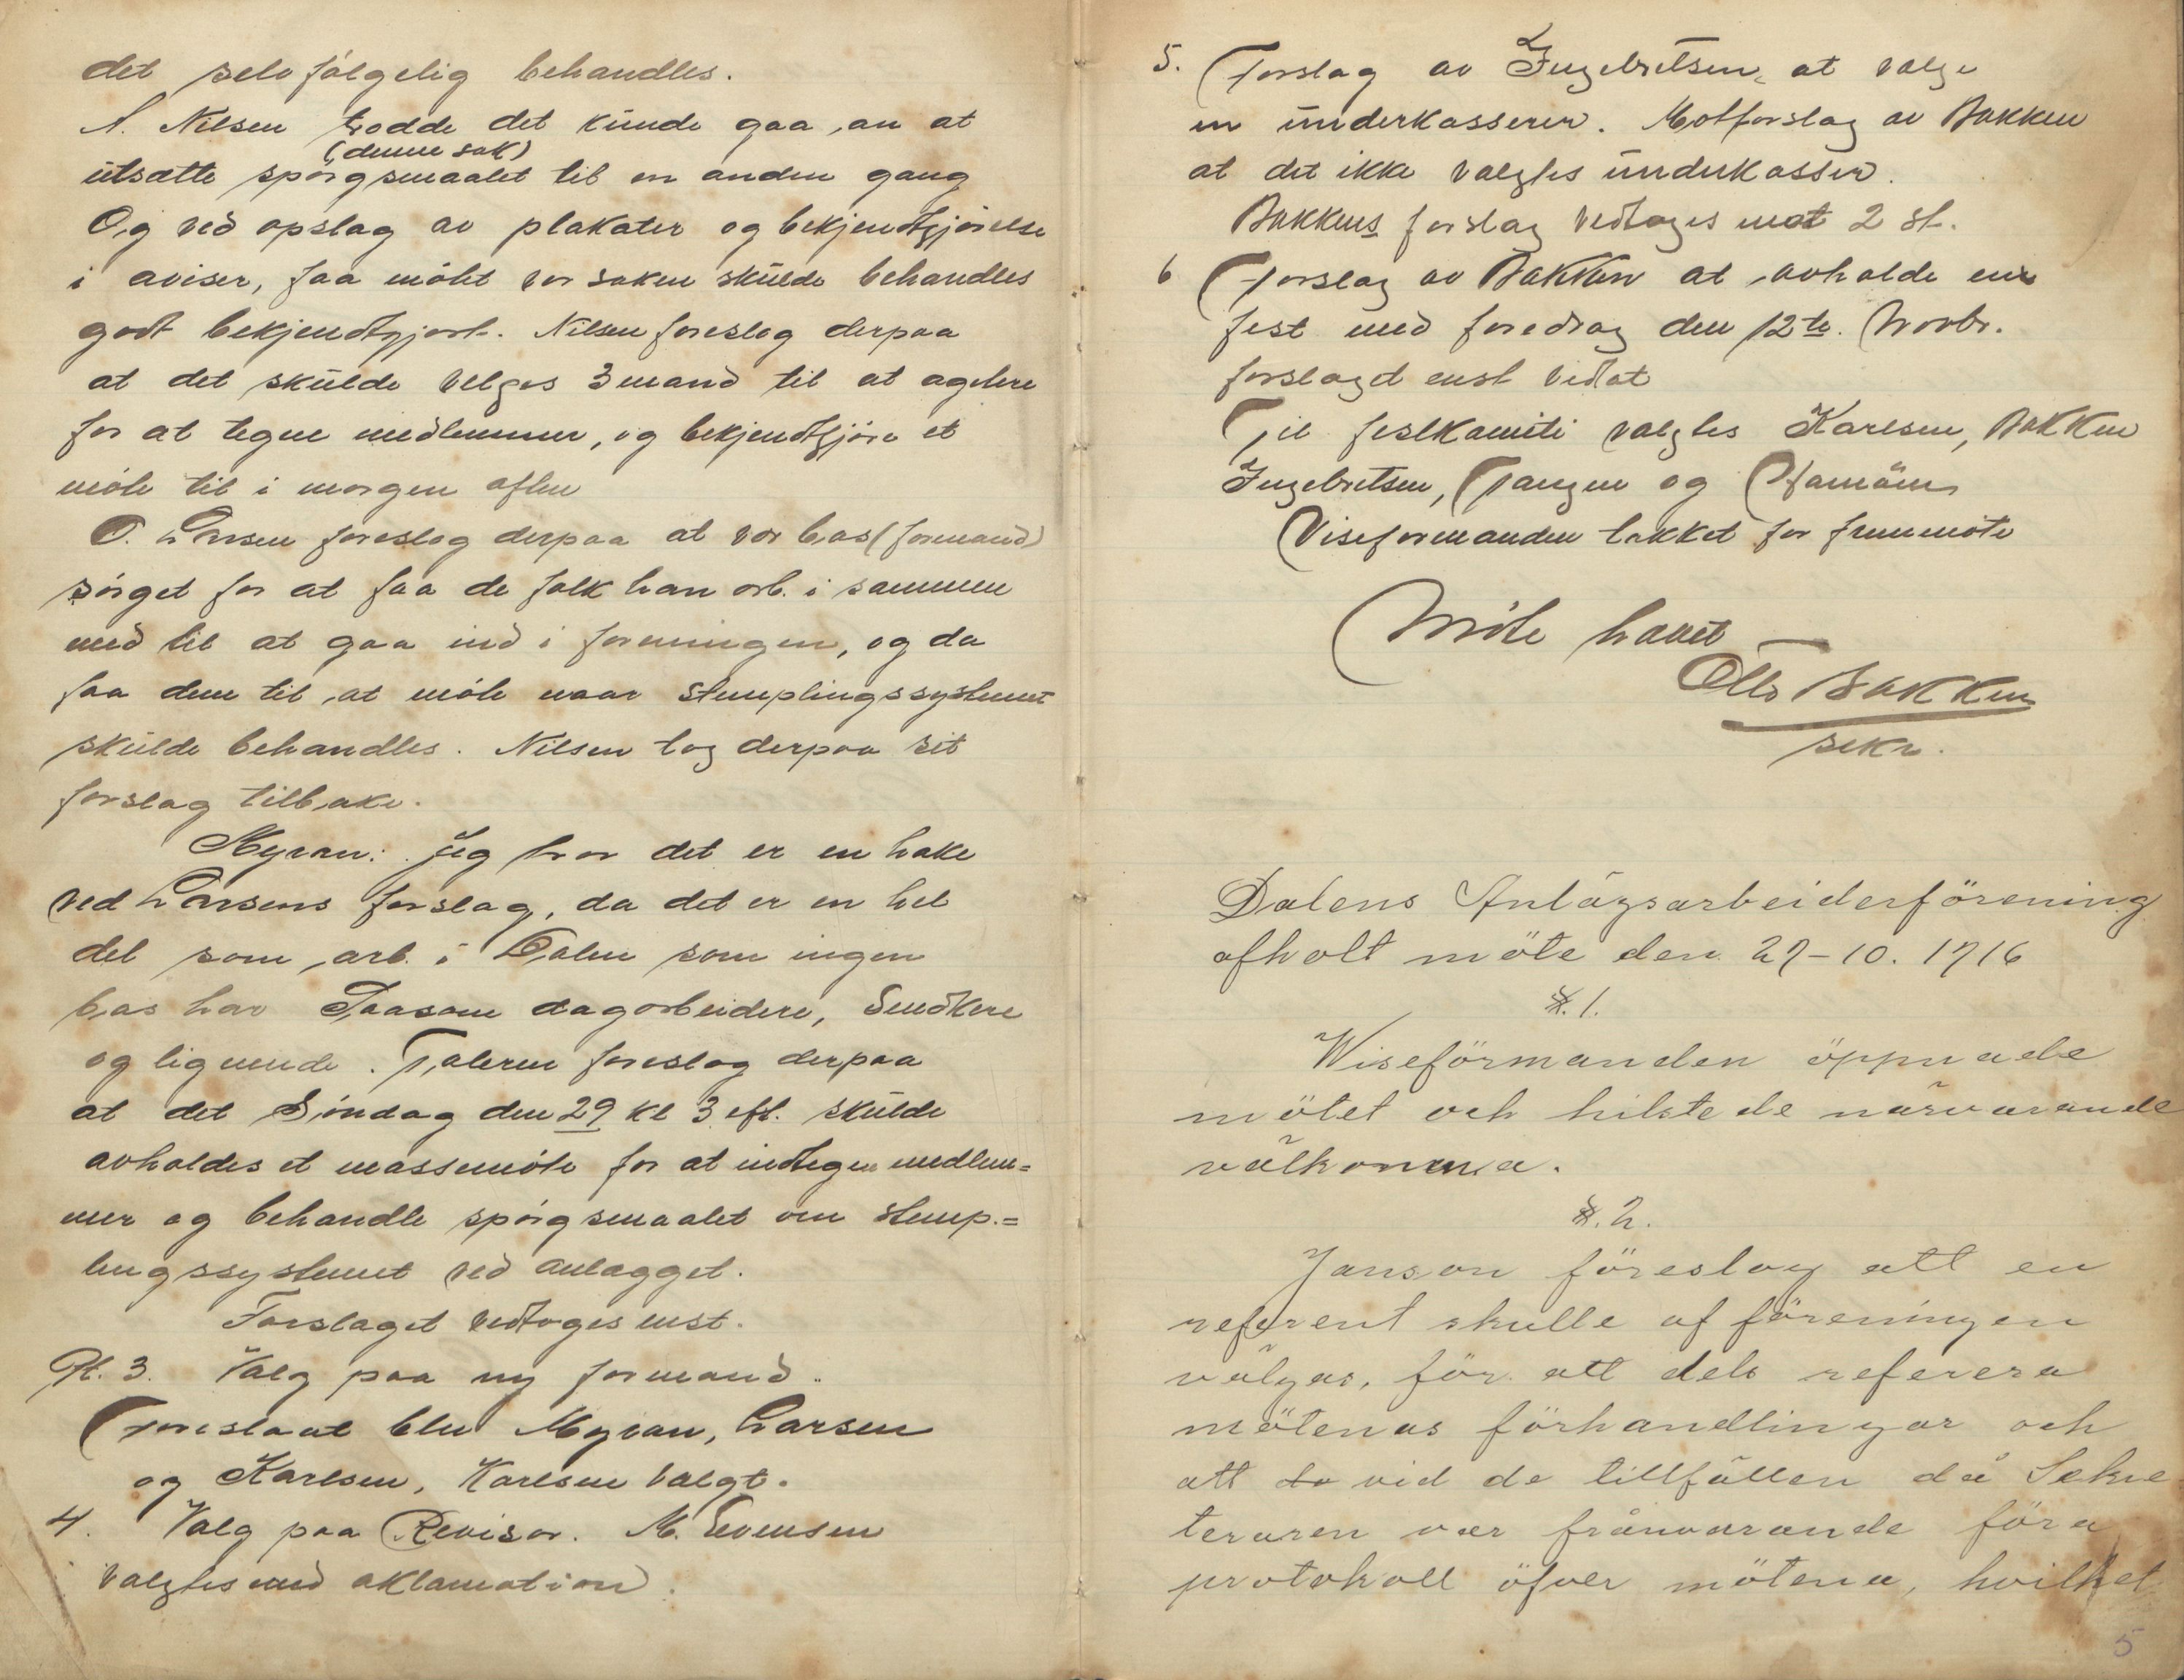 det selvfølgelig behandles.
A. Nilsen trodde det kunde gaa an at
(denne sak)
utsætte spørgsmaalet til en anden gang
Og ved opslag av plakater og bekjendtgjørelse
i aviser, faa møtet vor saken skulde behandles
godt bekjendtgjort. Nilsen foreslog derpaa
at det skulde velges 3 mand til at agitere
for at tegne medlemmer, og bekjendtgjøre et
møte til i morgen aften
O. Larsen foreslog derpaa at vor bas (formand)
sørget for at faa de folk han arb. i sammen
med til at gaa ind i foreningen, og da
faa dem til at møte naar stemplingssystemet
skulde behandles. Nilsen tog derpaa sit
forslag tilbake.
Myran: Jeg tror det er en hake
ved Larsens forslag, da det er en hel
del som arb. i Dalen som ingen
bas har Saasom dagarbeidere, Snedkere
og lignende. Taleren foreslog derpaa
at det Søndag den 29 kl 3 eft. skulde
avholdes et massemøte for at indtegne medlem=
mer og behandle spørgsmaalet om stemp.=
lingssystemet ved anlægget.
Forslaget vedtoges enst.
Pt. 3. Valg paa ny formand.
Foreslaat blev Myran, Larsen
og Karlsen, Karlsen valgt.
4. Valg paa Revisor. M. Evensen
valgtes med aklamation.
5. Forslag av Ingebretsen, at valge
en underkasserer. Motforslag av Bakken
at det ikke valgtes underkasser.
Bakkens forslag vedtoges mot 2 st.
6 Forslag av Bakken at avholde en
fest med foredrag den 12te. Novbr.
forslaged enst vedtat
Til festkomite valgtes Karlsen, Bakken
Ingebretsen, Tangen og
Viseformanden takket for fremmøte
Møte hævet
Otto Bakken
sekr.
Dalens Anlägsarbeiderförening
afholt möte den 27-10. 1916
§. 1.
Wiseförmanden öppnade
mötet och hilste de närvarande
välkomna.
§. 2.
Janson föreslog att en
referent skulle af föreningen
väljas, för att dels referera
mötenas förhandlingar och
att vid de tillfällen då Sekre
teraren var frånvarande föra
protokoll öfver mötena, hvilket
5